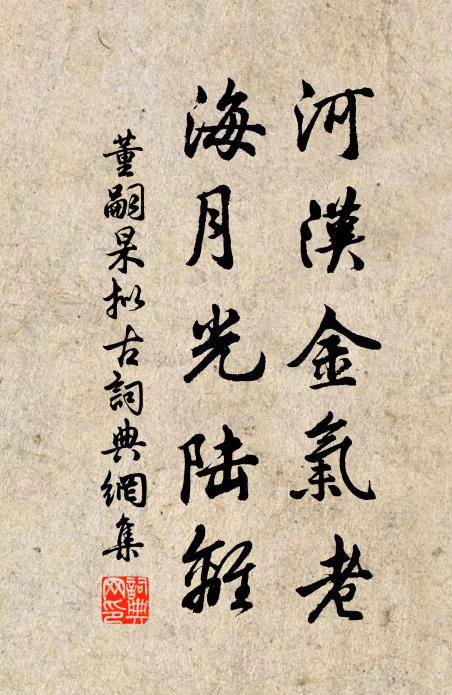 河漢金氣老
海月光陸離
董嗣杲拟古詞典網集
詞典網印